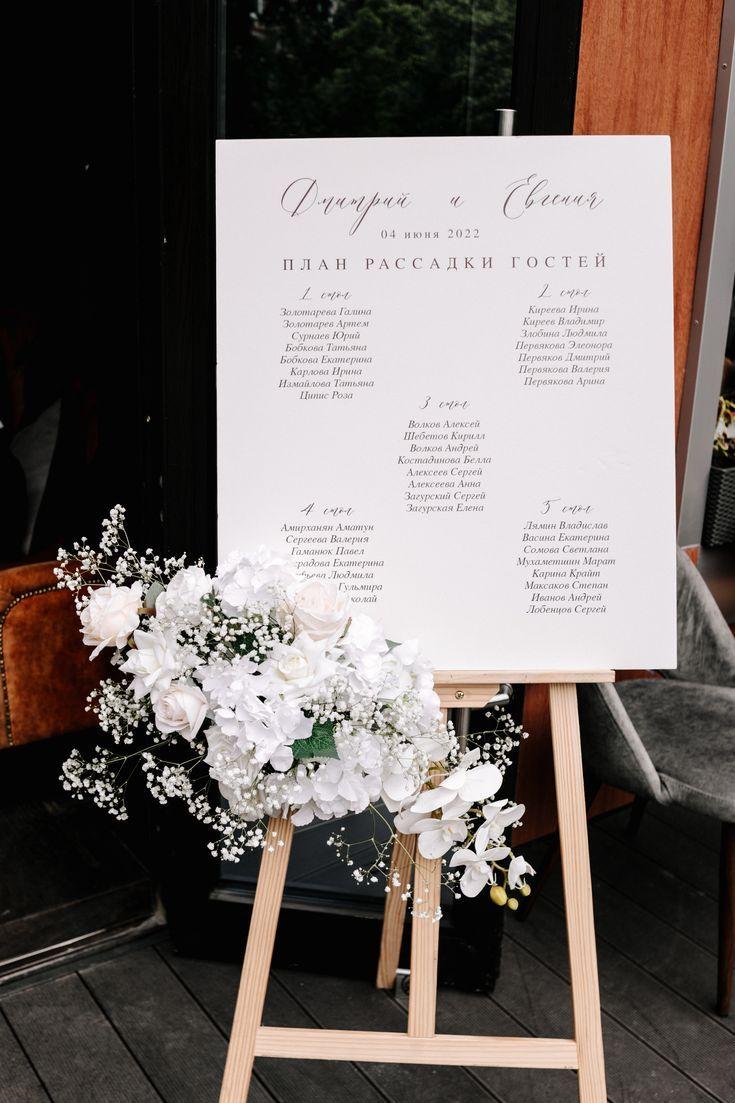 Дмитрий и Евгения
04 июня 2022
ПЛАН РАССАДКИ ГОСТЕЙ
1 стол
Золотарева Галина
Золотарев Артем
Сурнаев Юрий
Бобкова Татьяна
Бобкова Екатерина
Карлова Ирина
Измайлова Татьяна
Ципис Роза
2 стол
Киреева Ирина
Киреев Владимир
Злобина Людмила
Первякова Элеонора
Первяков Дмитрий
Первякова Валерия
Первякова Арина
3 стол
Волков Алексей
Шебетов Кирилл
Волков Андрей
Костадинова Белла
Алексеев Сергей
Алексеева Анна
Загурский Сергей
Загурская Елена
4 стол
Амирханян Аматун
Сергеева Валерия
Гаманюк Павел
Людмила
Гульмира
5 стол
Лямин Владислав
Васина Екатерина
Сомова Светлана
Мухаметшин Марат
Карина Крайт
Максаков Степан
Иванов Андрей
Лобенцов Сергей